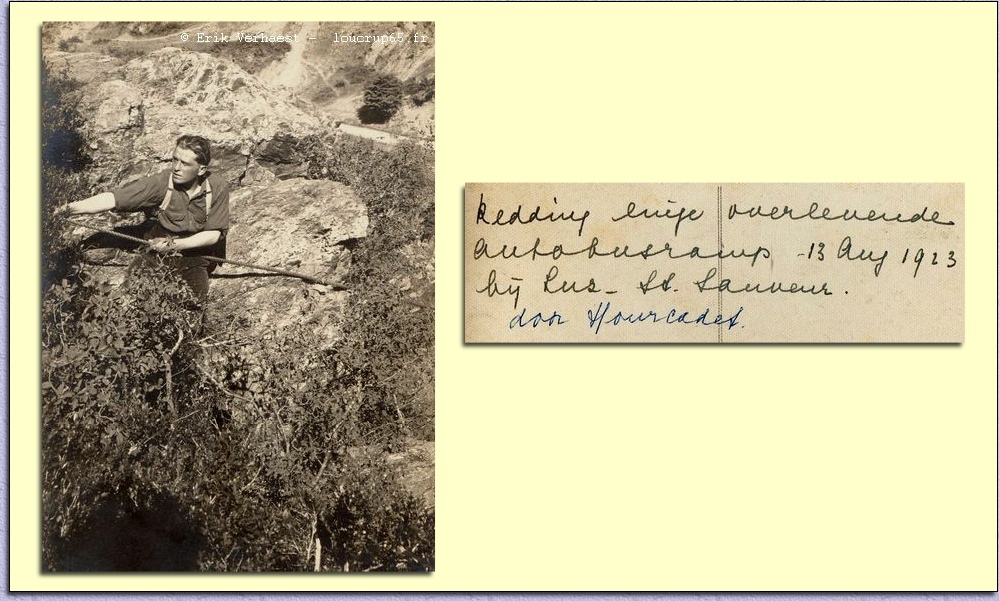 © Erik Verhaest - loucrup65.fr
Redding enige overlevende
autobusramp - 13 Aug 1923
bij Luz - St. Sauveur.
door Hourcadet.